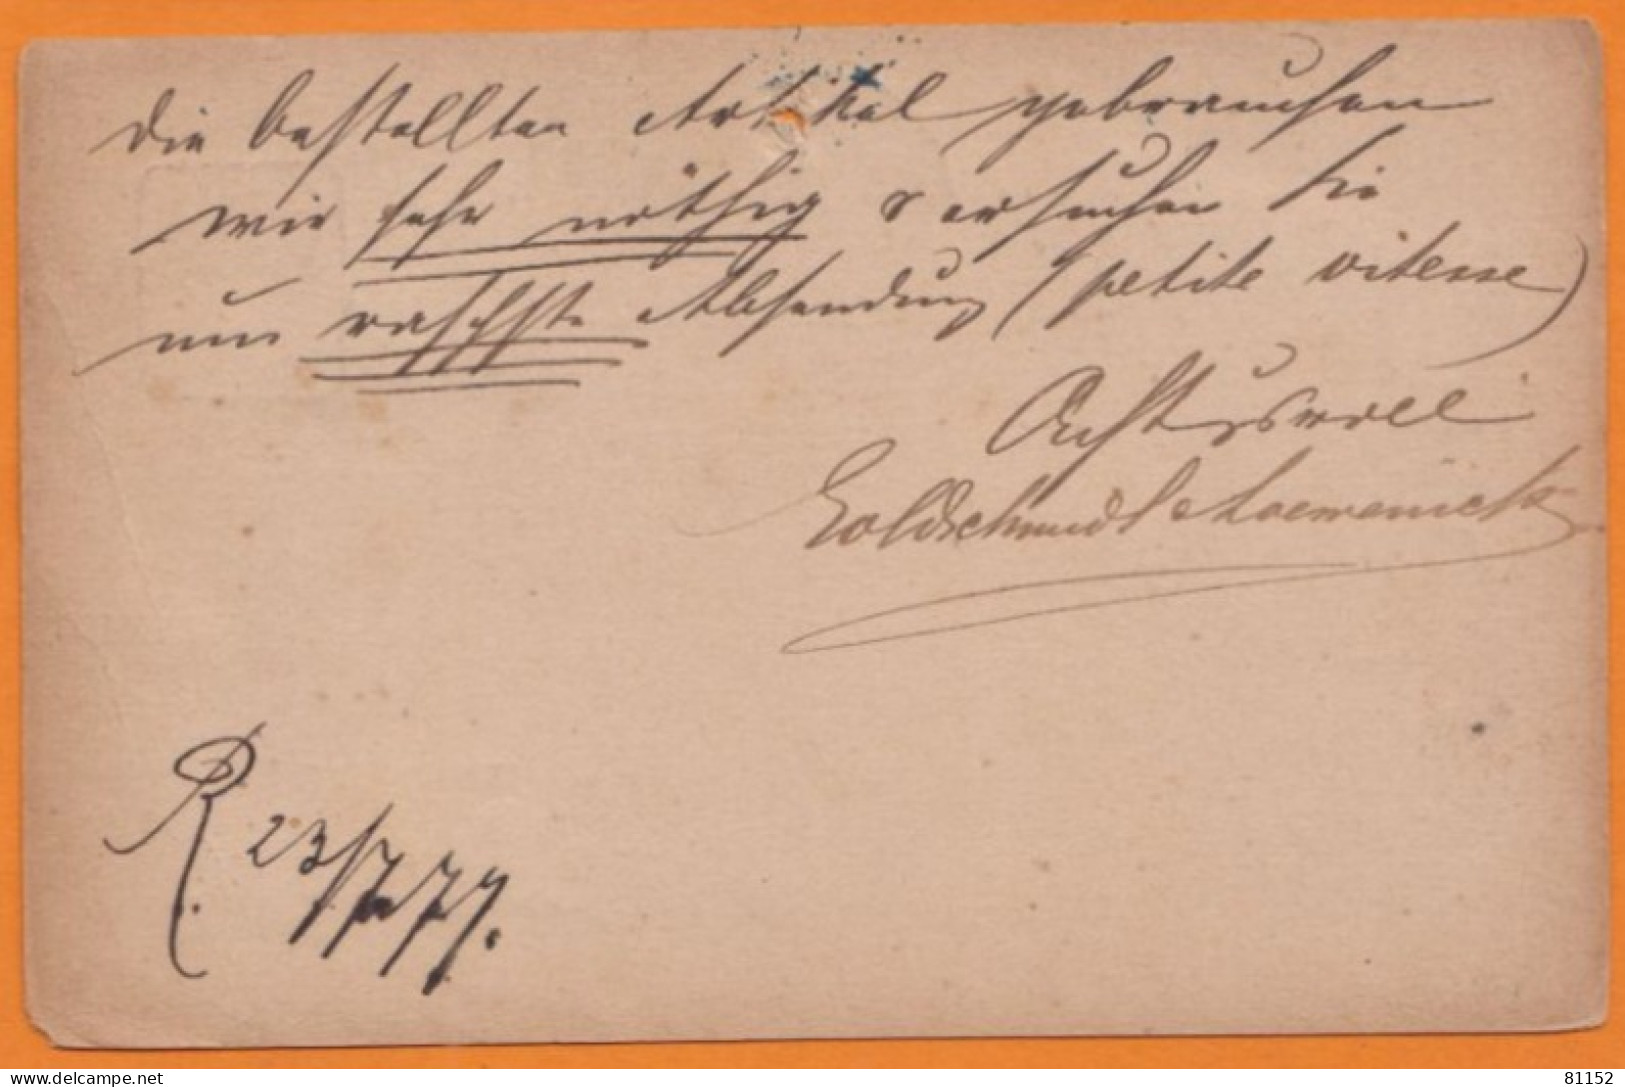 Die bestellten Artikel gebrauchen
wir sehr nöthig & ersuchen Sie
um raschste Absendung (petite vitesse)
Achtungsvoll
Goldschmidt & Loewenick
R. 23/7 77.
delcampe.net
81152